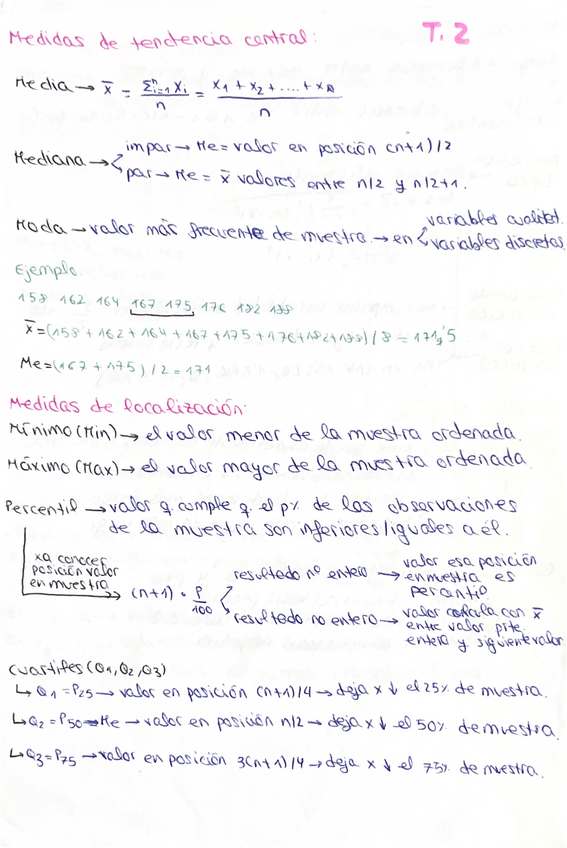 Medidas de tendencia central: T. 2
Media → x̄ = Σⁿᵢ₌₁ xᵢ / n = x₁ + x₂ + .... + xₙ / n
Mediana → impar → Me = valor en posición (n+1)/2
par → Me = x̄ valores entre n/2 y n/2+1.
Moda → valor más frecuente de muestra. → en variables cualitat.
variables discretas.
Ejemplo:
158 162 164 167 175 176 182 188
x̄ = (158 + 162 + 164 + 167 + 175 + 176 + 182 + 188) / 8 = 171,5
Me = (167 + 175) / 2 = 171
Medidas de localización:
Mínimo (Min) → el valor menor de la muestra ordenada.
Máximo (Max) → el valor mayor de la muestra ordenada.
Percentil → valor q. cumple q. el p% de las observaciones
de la muestra son inferiores/iguales a él.
xa conocer
posición valor
en muestra
(n+1) · P/100
resultado nº entero → valor esa posición
en muestra es
percentil
resultado no entero → valor calcula con x̄
entre valor pte.
entera y siguiente valor.
Cuartiles (Q₁, Q₂, Q₃)
↳ Q₁ = P₂₅ → valor en posición (n+1)/4 → deja x ↓ el 25% de muestra.
↳ Q₂ = P₅₀ = Me → valor en posición n/2 → deja x ↓ el 50% de muestra.
↳ Q₃ = P₇₅ → valor en posición 3(n+1)/4 → deja x ↓ el 75% de muestra.